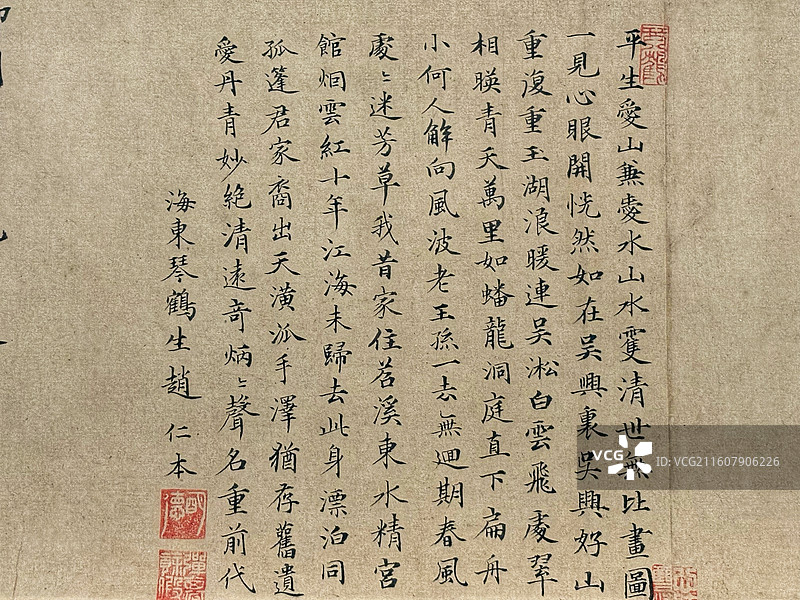 平生愛山兼愛水山水雙清世無比畫圖
一見心眼開恍然如在吳興裏吳興好山
重復重玉湖浪暖連吳淞白雲飛處翠
相暎青天萬里如蟠龍洞庭直下扁舟
小何人解向風波老王孫一去無迴期春風
處〻迷芳草我昔家住苕溪東水精宮
館烟雲紅十年江海未歸去此身漂泊同
孤篷君家裔出天潢派手澤猶存舊遺
愛丹青妙絕清遠竒炳〻聲名重前代
海東琴鶴生趙仁本
VCG
VCG211607906226